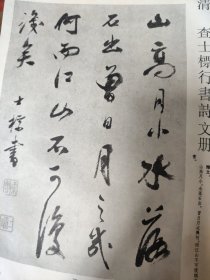 清 查士標行書詩文册
山高月小水落
石出曾日月之幾
何而江山不可復
識矣
士標書